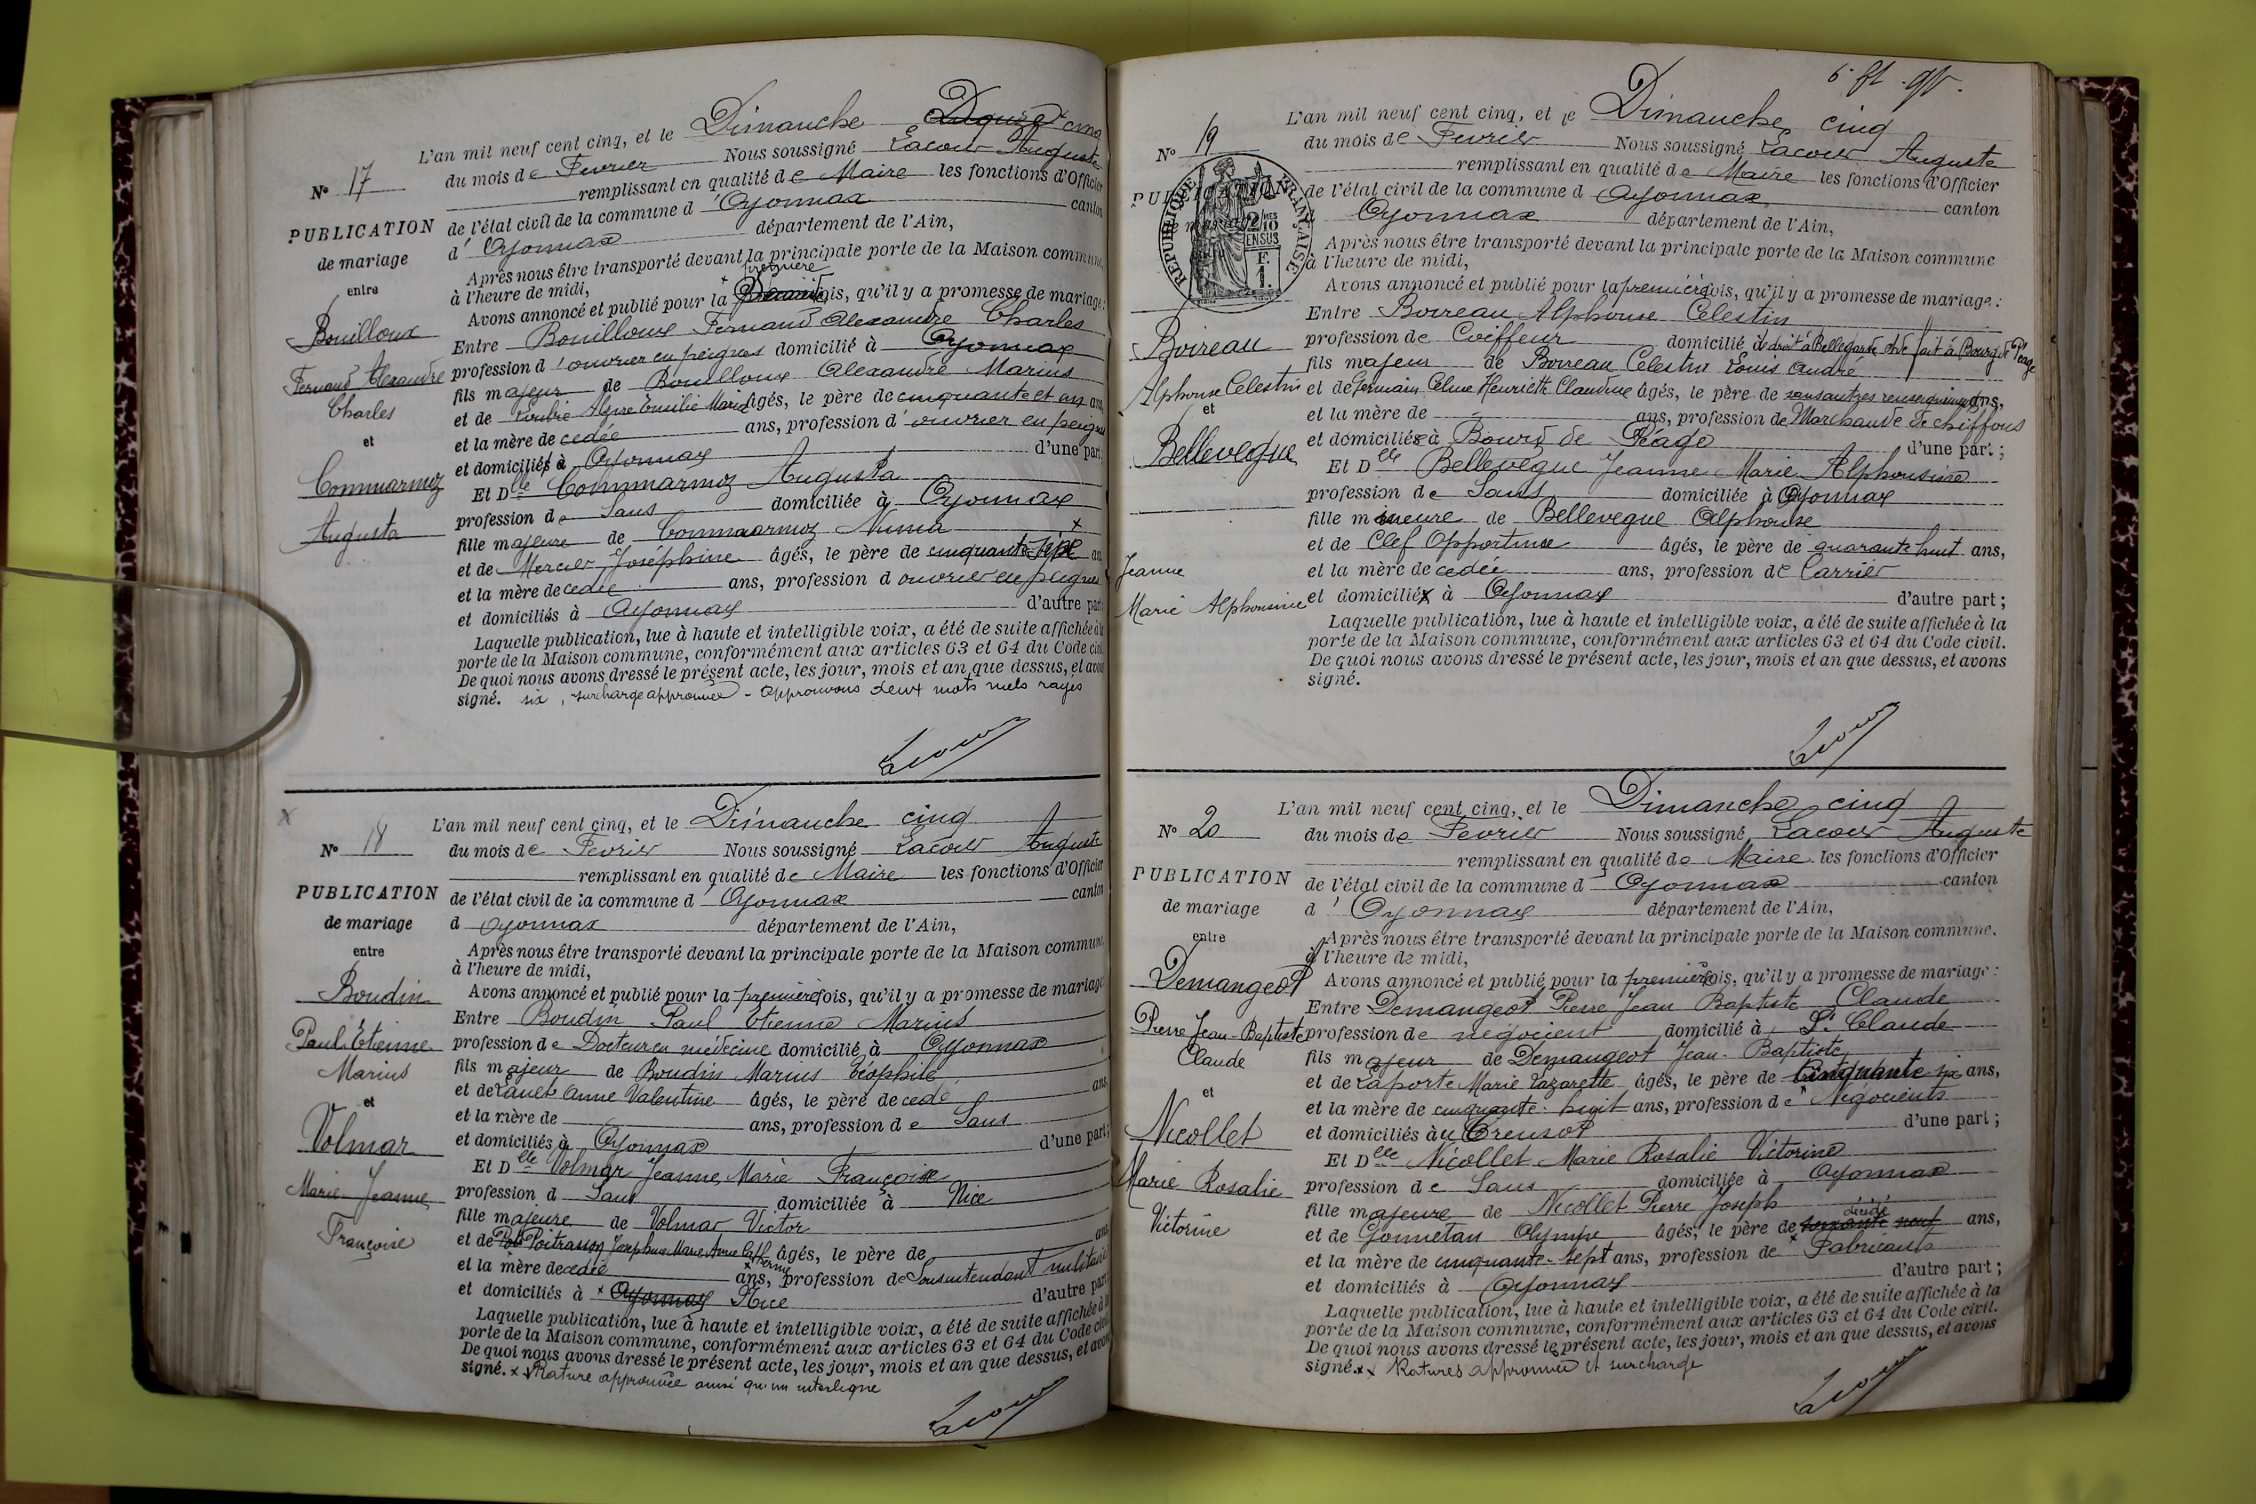 L'an mil neuf cent cinq, et le Dimanche cinq
N° 17
du mois de Fevrier Nous soussigné Lacour Auguste
remplissant en qualité de Maire les fonctions d'Officier
PUBLICATION
de l'état civil de la commune d'Oyonnax canton
de mariage
d'Oyonnax département de l'Ain,
entre
Après nous être transporté devant la principale porte de la Maison commune,
à l'heure de midi,
première
Avons annoncé et publié pour la fois, qu'il y a promesse de mariage:
Bouilloux
Entre Bouilloux Fernand Alexandre Charles
Fernand Alexandre
profession d'ouvrier en peignes domicilié à Oyonnax
Charles
fils majeur de Bouilloux Alexandre Marius
et
et de Alzire Emilie Maria âgés, le père de cinquante et un ans,
et la mère décédée ans, profession d'ouvrier en peignes
Commarmoz
et domiciliés à Oyonnax d'une part;
Augusta
Et Dlle Commarmoz Augusta
profession de Sans domiciliée à Oyonnax
fille majeure de Commarmoz Numa
et de Mercier Joséphine âgés, le père de cinquante ans
et la mère décédée ans, profession d ouvrier en peignes
et domiciliés à Oyonnax d'autre part
Laquelle publication, lue à haute et intelligible voix, a été de suite affichée à la
porte de la Maison commune, conformément aux articles 63 et 64 du Code civil.
De quoi nous avons dressé le présent acte, les jour, mois et an que dessus, et avons
signé. six, surcharge approuvée - approuvons deux mots nuls rayés
Lacour
L'an mil neuf cent cinq, et le Dimanche cinq
N° 18
du mois de Fevrier Nous soussigné Lacour Auguste
remplissant en qualité de Maire les fonctions d'Officier
PUBLICATION
de l'état civil de la commune d'Oyonnax canton
de mariage
d Oyonnax département de l'Ain,
entre
Après nous être transporté devant la principale porte de la Maison commune,
à l'heure de midi,
Boudin
Avons annoncé et publié pour la première fois, qu'il y a promesse de mariage
Paul Etienne
Entre Boudin Paul Etienne Marius
Marius
profession de Docteur en médecine domicilié à Oyonnax
et
fils majeur de Boudin Marius
et de Anne Valentine âgés, le père décédé ans,
et la mère de ans, profession de Sans
Volmar
et domiciliés à Oyonnax d'une part;
Marie Jeanne
Et Dlle Volmar Jeanne Marie Françoise
Françoise
profession d Sans domiciliée à Nice
fille majeure de Volmar Victor
et de Poitrasson Josephine Marie Anne âgés, le père de ans
et la mère décédée ans, profession de Sousintendant militaire
et domiciliés à Oyonnax Nice d'autre part
Laquelle publication, lue à haute et intelligible voix, a été de suite affichée à la
porte de la Maison commune, conformément aux articles 63 et 64 du Code civil
De quoi nous avons dressé le présent acte, les jour, mois et an que dessus, et avons
signé. x x Rature approuvée ainsi qu'un interligne
Lacour
L'an mil neuf cent cinq, et le Dimanche cinq
N° 19
du mois de Fevrier Nous soussigné Lacour Auguste
remplissant en qualité de Maire les fonctions d'Officier
PUBLICATION
RÉPUBLIQUE FRANÇAISE
2/10 EN SUS
F. 1.
de l'état civil de la commune d Oyonnax canton
Oyonnax département de l'Ain,
Après nous être transporté devant la principale porte de la Maison commune
à l'heure de midi,
Avons annoncé et publié pour la première fois, qu'il y a promesse de mariage:
Boireau
Entre Boireau Alphonse Celestin
Alphonse Celestin
profession de Coiffeur domicilié de droit à Bellegarde et de fait à Bourg de Péage
et
fils majeur de Boireau Celestin Louis André
et de Germain Celine Henriette Claudine âgés, le père de sans autres renseignements ans,
Bellevegue
et la mère de ans, profession de Marchande de chiffons
et domiciliés à Bourg de Péage d'une part;
Jeanne
Marie Alphonsine
Et Dlle Bellevegue Jeanne Marie Alphonsine
profession de Sans domiciliée à Oyonnax
fille mineure de Bellevegue Alphonse
et de Clef Opportune âgés, le père de quarante huit ans,
et la mère décédée ans, profession de Carrier
et domiciliés à Oyonnax d'autre part;
Laquelle publication, lue à haute et intelligible voix, a été de suite affichée à la
porte de la Maison commune, conformément aux articles 63 et 64 du Code civil.
De quoi nous avons dressé le présent acte, les jour, mois et an que dessus, et avons
signé.
Lacour
L'an mil neuf cent cinq, et le Dimanche cinq
N° 20
du mois de Fevrier Nous soussigné Lacour Auguste
remplissant en qualité de Maire les fonctions d'Officier
PUBLICATION
de l'état civil de la commune d'Oyonnax canton
de mariage
d'Oyonnax département de l'Ain,
entre
Après nous être transporté devant la principale porte de la Maison commune.
à l'heure de midi,
Demangeot
Avons annoncé et publié pour la première fois, qu'il y a promesse de mariage:
Pierre Jean-Baptiste
Entre Demangeot Pierre Jean Baptiste Claude
Claude
profession de négociant domicilié à St Claude
et
fils majeur de Demangeot Jean-Baptiste
et de Laporte Marie Lazarette âgés, le père de cinquante six ans,
Nicollet
et la mère de cinquante-huit ans, profession de Négociants
et domiciliés au Creusot d'une part;
Marie Rosalie
Et Dlle Nicollet Marie Rosalie Victorine
Victorine
profession de Sans domiciliée à Oyonnax
fille majeure de Nicollet Pierre Joseph
décédé
et de Gonnetan Olympe âgés, le père de soixante neuf ans,
et la mère de cinquante-sept ans, profession de Fabricants
et domiciliés à Oyonnax d'autre part;
Laquelle publication, lue à haute et intelligible voix, a été de suite affichée à la
porte de la Maison commune, conformément aux articles 63 et 64 du Code civil.
De quoi nous avons dressé le présent acte, les jour, mois et an que dessus, et avons
signé. x x Ratures approuvées et surcharge
Lacour